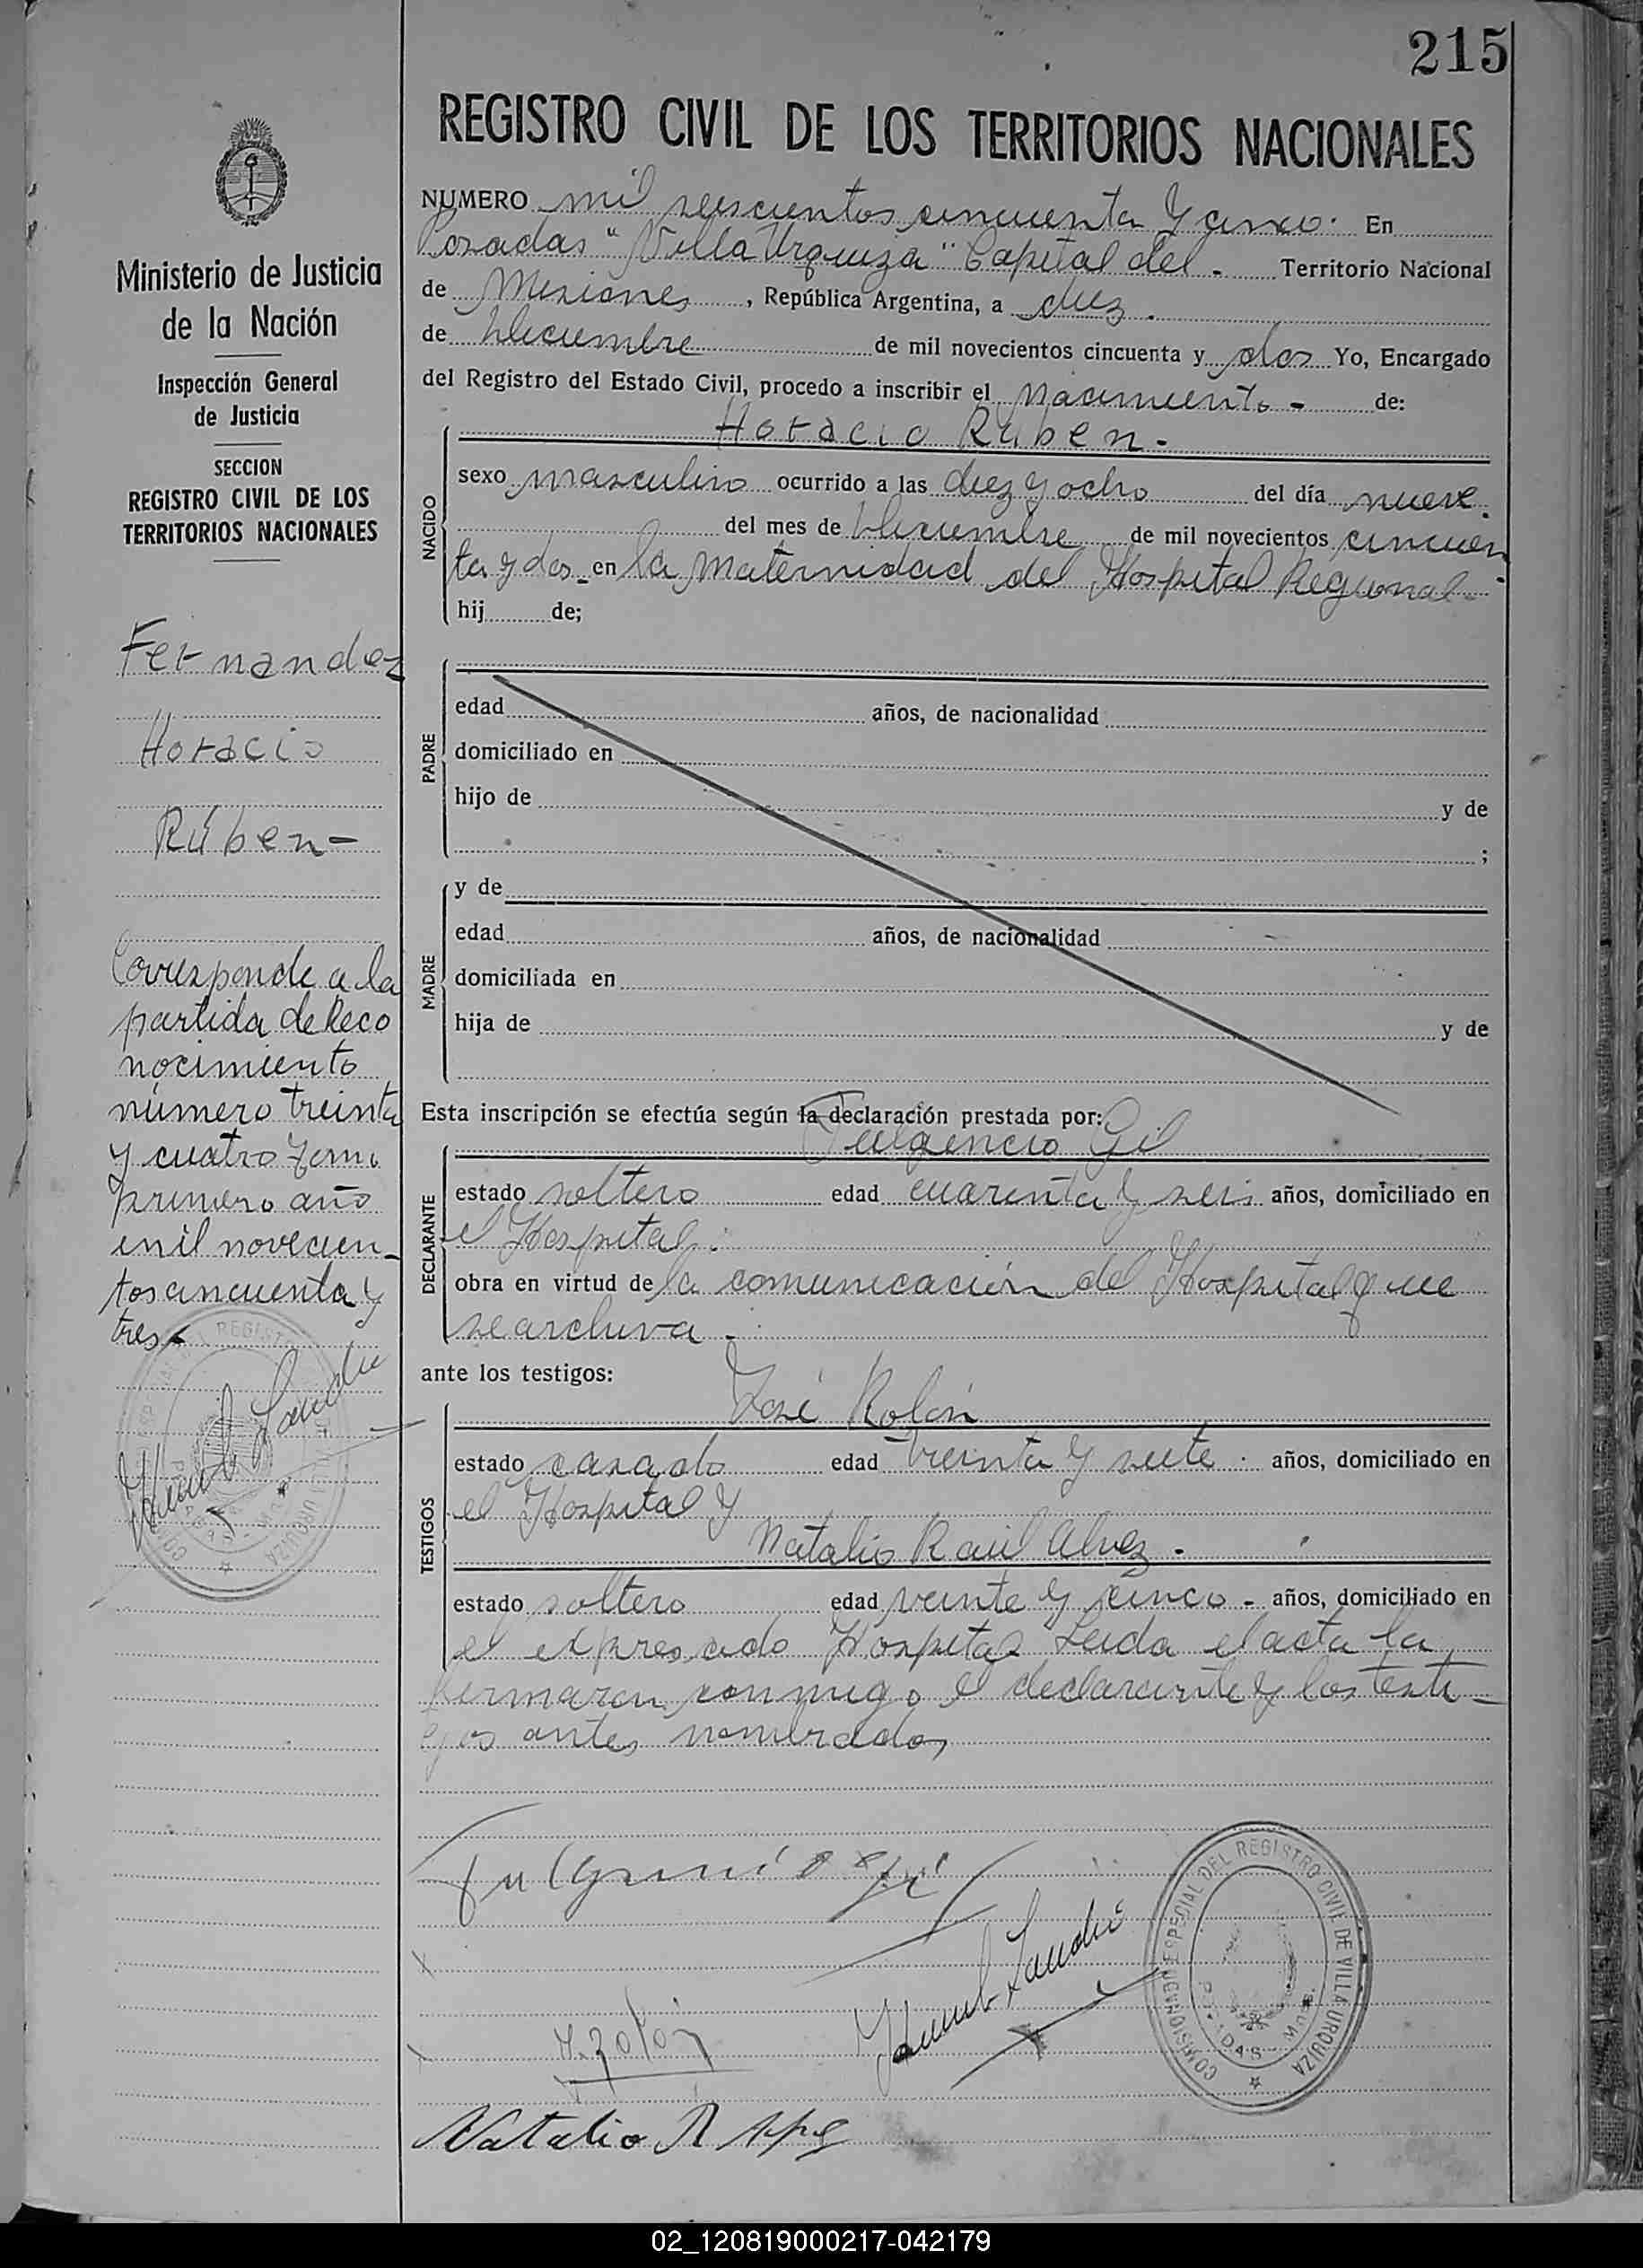 215
REGISTRO CIVIL DE LOS TERRITORIOS NACIONALES
NUMERO mil seiscientos cincuenta y cinco. En
Posadas "Villa Urquiza" Capital del - Territorio Nacional
de Misiones, República Argentina, a diez.
de Diciembre de mil novecientos cincuenta y dos Yo, Encargado
del Registro del Estado Civil, procedo a inscribir el Nacimiento - de:
Horacio Rúben -
NACIDO
sexo masculino ocurrido a las diez y ocho del día nueve.
del mes de Diciembre de mil novecientos cincuen
ta y dos en la Maternidad del Hospital Regional -
hij de;
PADRE
edad años, de nacionalidad
domiciliado en
hijo de y de
;
MADRE
y de
edad años, de nacionalidad
domiciliada en
hija de y de
Esta inscripción se efectúa según la declaración prestada por:
Fulgencio Gil
DECLARANTE
estado soltero edad cuarenta y seis años, domiciliado en
el Hospital.
obra en virtud de la comunicación del Hospital que
se archiva -
ante los testigos:
José Rolón
TESTIGOS
estado casado edad treinta y siete . años, domiciliado en
el Hospital y
Natalio Raúl Alvez -
estado soltero edad veinte y cinco - años, domiciliado en
el expresado Hospital Leida el acta la
firmaron conmigo el declarante y los testi-
gos antes nombrados
Fulgencio Gil
J. Rolón
Natalio R
COMISIONADO ESPECIAL DEL REGISTRO CIVIL DE VILLA URQUIZA
POSADAS - Mnes.
Ministerio de Justicia
de la Nación
Inspección General
de Justicia
SECCION
REGISTRO CIVIL DE LOS
TERRITORIOS NACIONALES
Fernandez
Horacio
Rúben -
Corresponde a la
partida de Reco
nocimiento
número treinta
y cuatro tomo
primero año
mil novecien-
tos cincuenta y
tres
02_120819000217-042179